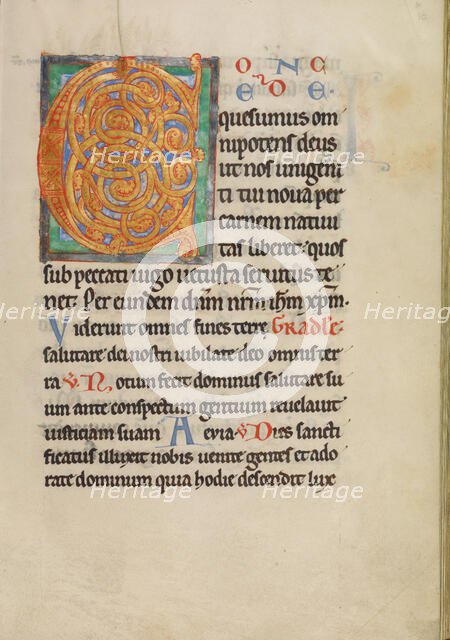 C O N C
E D E ·
quesumus om
nipotens deus
ut nos unigeni
ti tui noua per
carnem natiui
tas liberet quos
sub peccati iugo uetusta seruitus te
net. Per eundem dnm nrm ihm xpm.
Viderunt omnes fines terre Gradle
salutare dei nostri iubilate deo omnis ter
ra V Notum fecit dominus salutare su
um ante conspectum gentium reuelauit
iusticiam suam Aeuia V Dies sancti
ficatus illuxit nobis uenite gentes et ado
rate dominum quia hodie descendit lux
Heritage
Heritage
Heritage
Heritage
Heritage
Heritage
Heritage